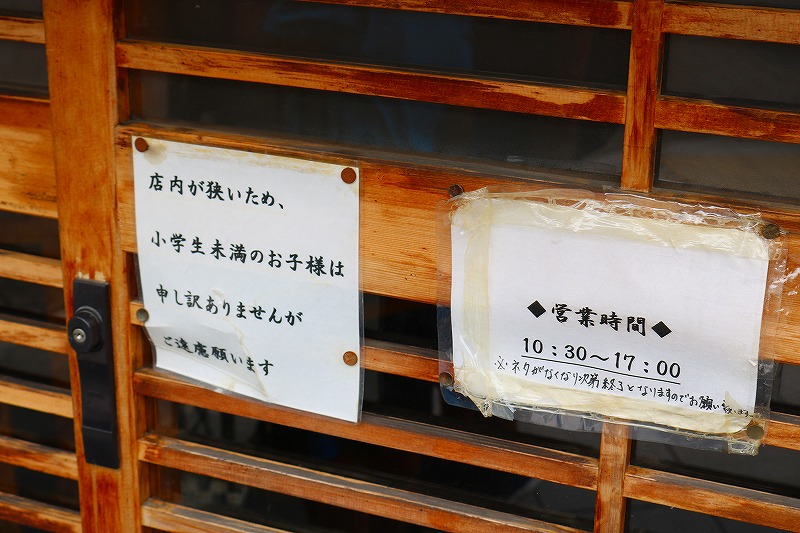 店内が狭いため、
小学生未満のお子様は
申し訳ありませんが
ご遠慮願います
◆営業時間◆
10:30～17:00
※ネタがなくなり次第終了となりますのでお願い致します